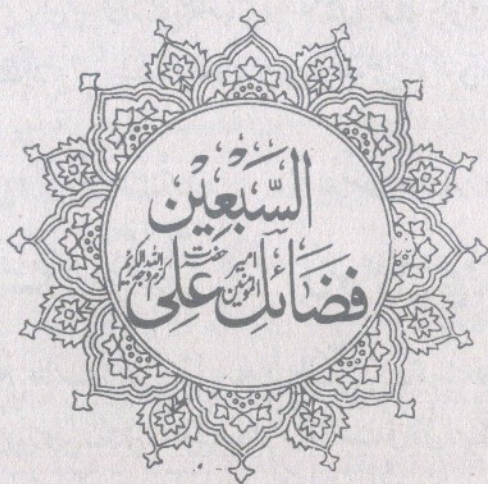 السَّبْعِیْن
فَضَائِلِ امیر المؤمنین حضرت عَلِی کرم اللہ وجہہ الکریم